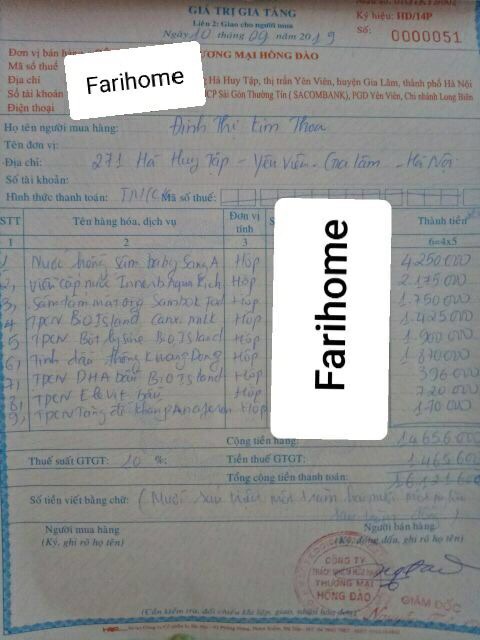 GIÁ TRỊ GIA TĂNG
Liên 2: Giao cho người mua
Ký hiệu: HD/14P
Ngày 10 tháng 09 năm 2019
Số: 0000051
Đơn vị bán hàng
ƯƠNG MẠI HỒNG ĐÀO
Mã số thuế
Farihome
Địa chỉ Hà Huy Tập, thị trấn Yên Viên, huyện Gia Lâm, thành phố Hà Nội
Số tài khoản CP Sài Gòn Thường Tín ( SACOMBANK), PGD Yên Viên, Chi nhánh Long Biên
Điện thoại
Họ tên người mua hàng: Đinh Thị Kim Thoa
Tên đơn vị:
Địa chỉ: 271 Hà Huy Tập - Yên Viên - Gia Lâm - Hà Nội
Số tài khoản:
Hình thức thanh toán: TM/CK Mã số thuế:
STT Tên hàng hóa, dịch vụ Đơn vị tính Thành tiền
1 2 3 6=4x5
1 Nước hồng sâm baby Sang A Hộp 4250000
2, Viên cấp nước Innerb Aqua Rich Hộp 2.175.000
3, Hộp 1.750.000
4 TPCN BIO Island milk Hộp 1.425.000
5 TPCN Bột lysine Bio Island Hộp 1.900000
6, Tinh dầu thông Kwang Dong Hộp 1870000
7, TPCN DHA bầu BIO Island Hộp 396000
8, TPCN Elevit bầu Hộp 720000
9, TPCN Tăng đề kháng Hộp 170 000
Farihome
Cộng tiền hàng: 14656000
Thuế suất GTGT: 10 %: Tiền thuế GTGT: 1.465.600
Tổng cộng tiền thanh toán: 16121600
Số tiền viết bằng chữ: (Mười sáu triệu một trăm hai mươi mốt
Người mua hàng Người bán hàng
(Ký, ghi rõ họ tên) (Ký, đóng dấu, ghi rõ họ tên)
CÔNG TY
THƯƠNG MẠI
HỒNG ĐÀO
GIÁM ĐỐC
(Cần kiểm tra, đối chiếu khi lập, giao, nhận hóa đơn)